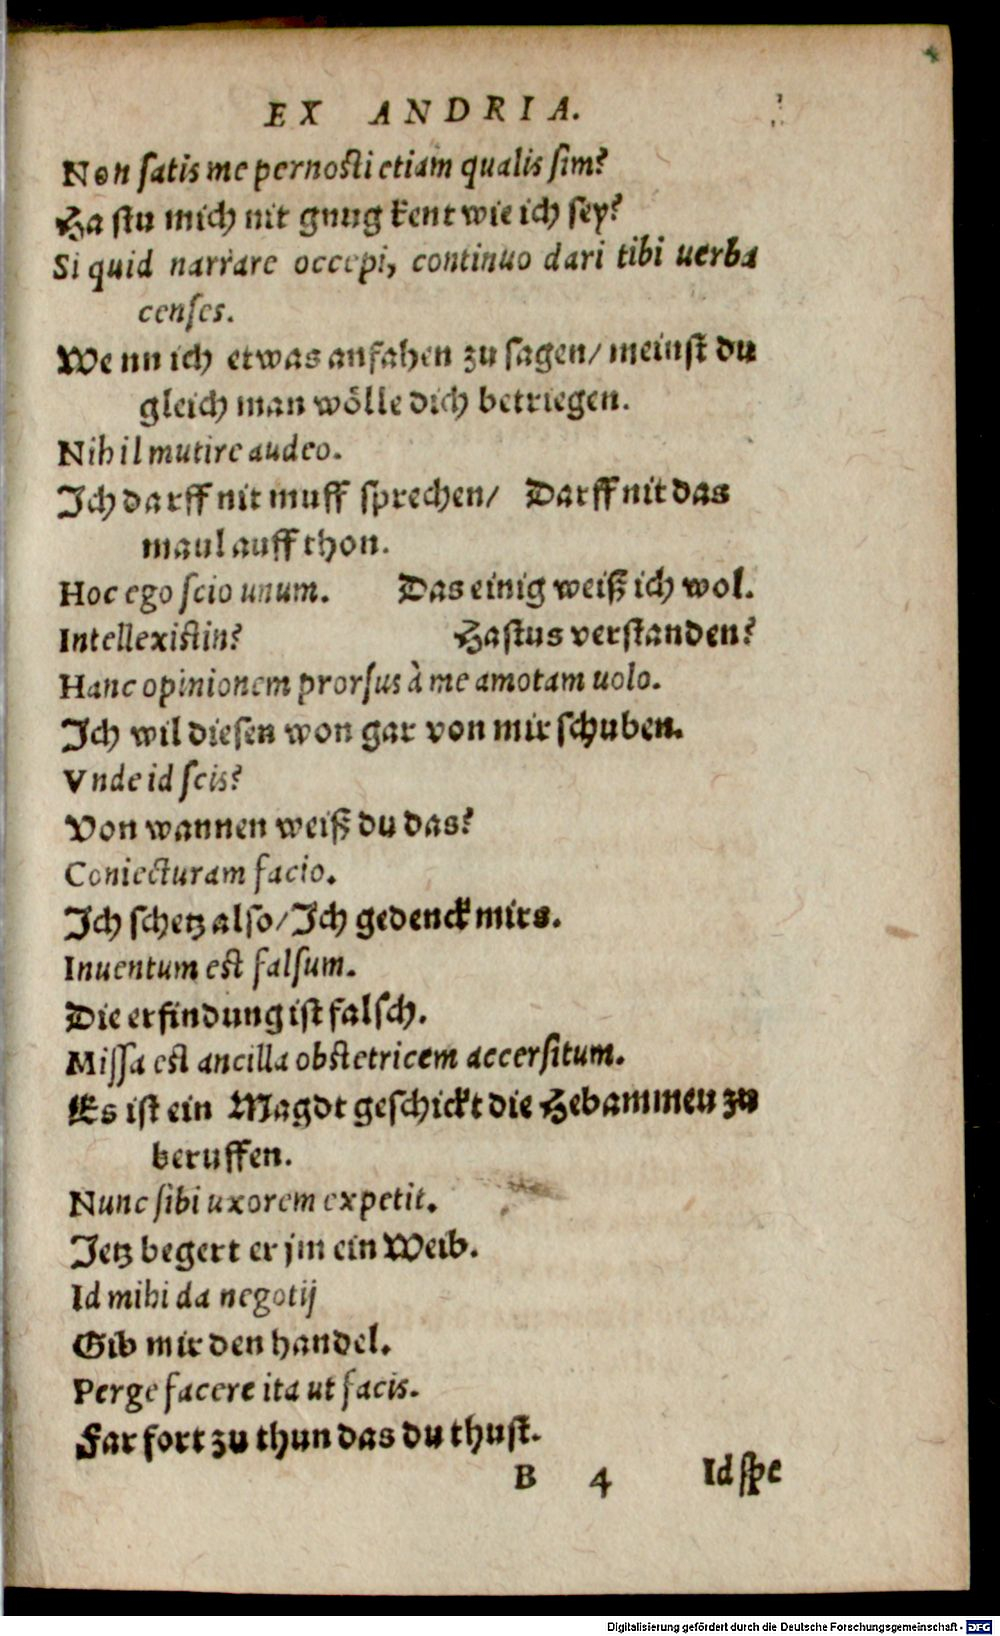 EX ANDRIA.
Non ſatis me pernoſti etiam qualis ſim?
Ha ſtu mich nit gnug kent wie ich ſey?
Si quid narrare occepi, continuo dari tibi uerba
cenſes.
Wenn ich etwas anfahen zu ſagen/ meinſt du
gleich man wölle dich betriegen.
Nihil mutire audeo.
Ich darff nit muff ſprechen/ Darff nit das
maul auff thon.
Hoc ego ſcio unum. Das einig weiß ich wol.
Intellexiſtin? Haſtus verſtanden?
Hanc opinionem prorſus à me amotam uolo.
Ich wil dieſen won gar von mir ſchuben.
Vnde id ſcis?
Von wannen weiß du das?
Coniecturam facio.
Ich ſchetz alſo/ Ich gedenck mirs.
Inuentum eſt falſum.
Die erfindung iſt falſch.
Miſſa eſt ancilla obſtetricem accerſitum.
Es iſt ein Magdt geſchickt die Hebammen zu
beruffen.
Nunc ſibi uxorem expetit.
Jetz begert er jm ein Weib.
Id mihi da negotij
Gib mir den handel.
Perge facere ita ut facis.
Far fort zu thun das du thuſt.
B 4 Id ſpe
Digitalisierung gefördert durch die Deutsche Forschungsgemeinschaft - DFG